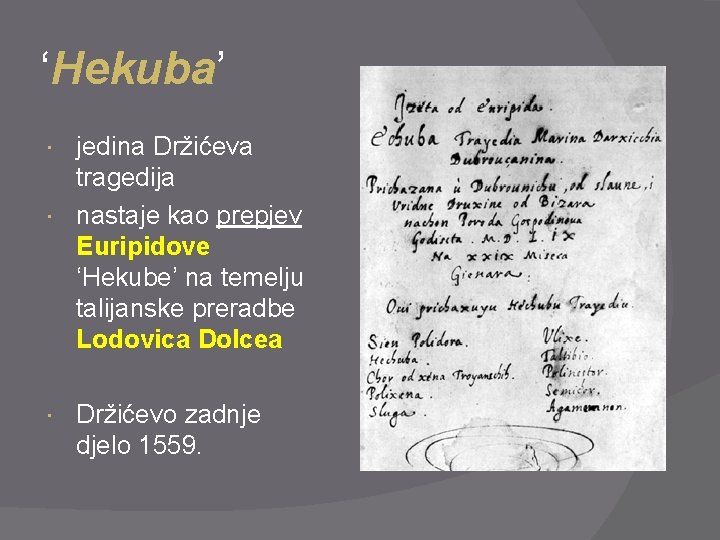 ‘Hekuba’
jedina Držićeva
tragedija
nastaje kao prepjev
Euripidove
‘Hekube’ na temelju
talijanske preradbe
Lodovica Dolcea
Držićevo zadnje
djelo 1559.
od Euripida.
Echuba Trayedia Marina Darxicchia
Dubroucanina.
Prichazana ù Dubrounichu, od slaune, i
Vridne Druxine od Bizara
nachon Poroda Gospodinova
Godiscta. M.D.L.IX
Na XXIX Miseca
Gienara.
Ovi prichaxuyu Hechubu Trayediu.
Sien Polidora.
Hechuba.
Chor od xena Troyanschih.
Polixena.
Sluga.
Vlixe.
Taltibio.
Polinestor.
Semicor.
Agamemnon.